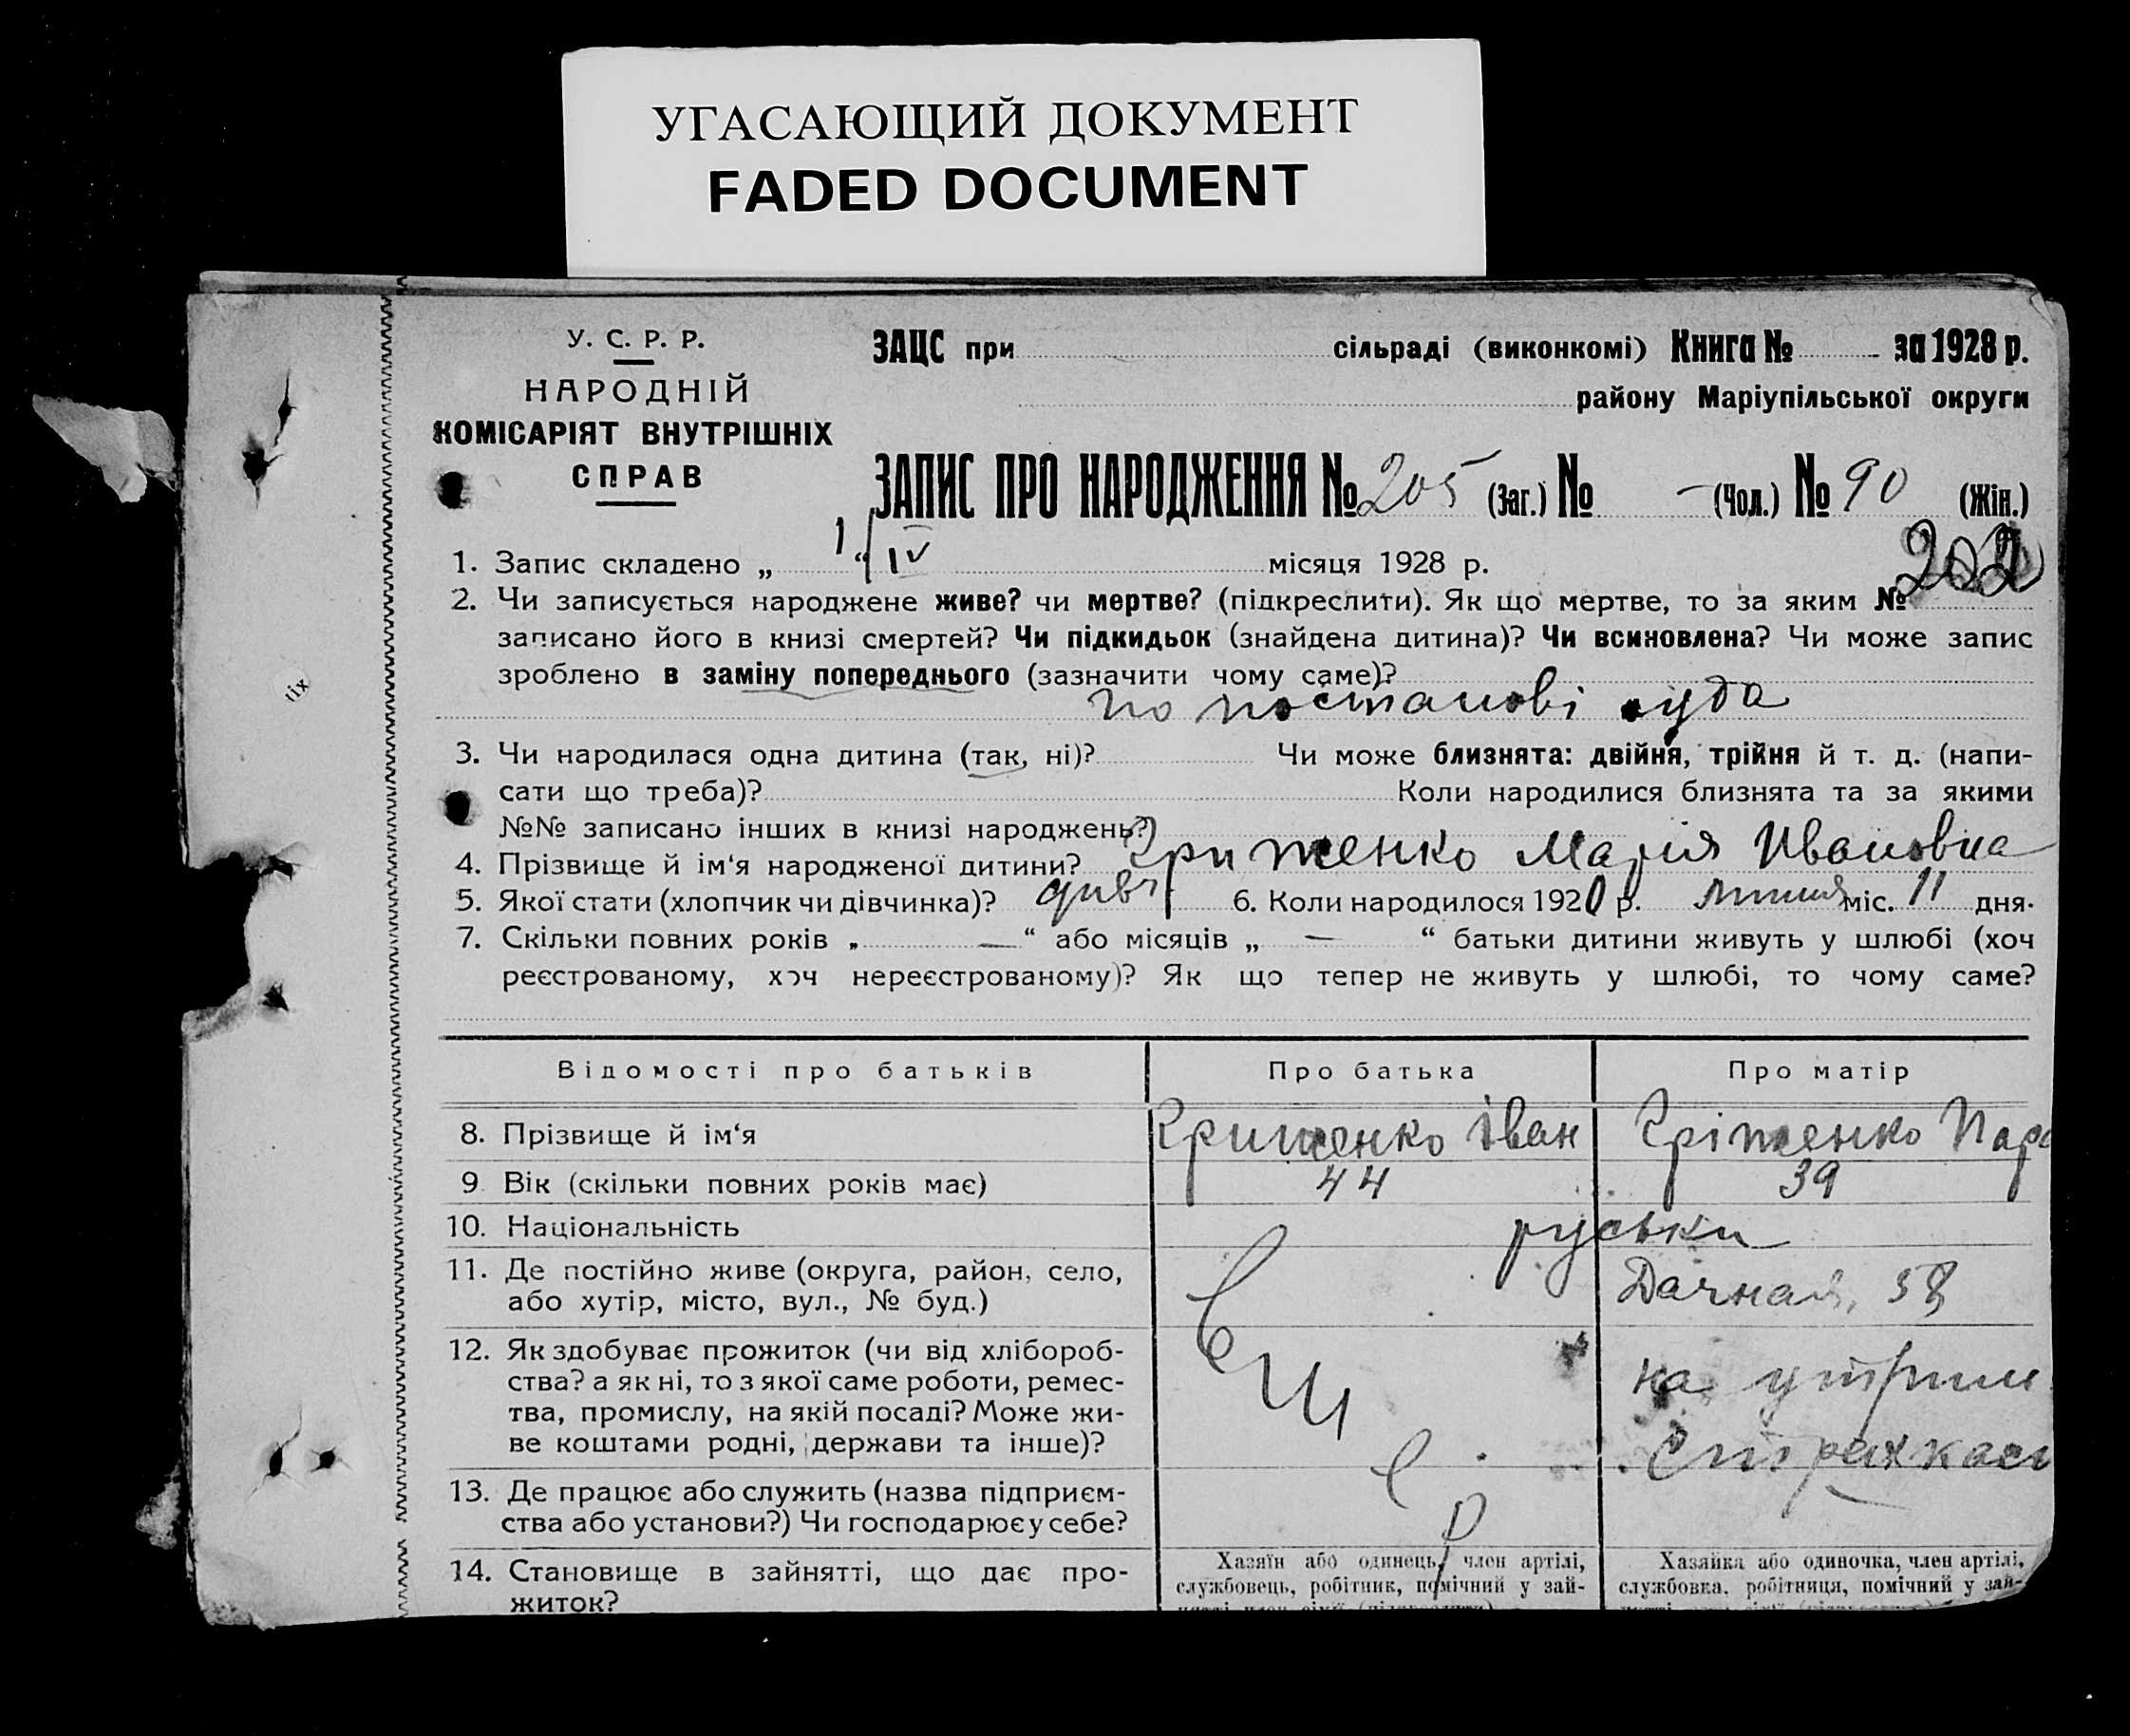 УГАСАЮЩИЙ ДОКУМЕНТ
FADED DOCUMENT
У. С. Р. Р.
НАРОДНІЙ
КОМІСАРІЯТ ВНУТРІШНІХ
СПРАВ
ЗАЦС при сільраді (виконкомі) Книга № за 1928 р.
району Маріупільської округи
ЗАПИС ПРО НАРОДЖЕННЯ № 205 (Заг.) № — (Чол.) № 90 (Жін.)
202
1. Запис складено „ 1 “ IV місяця 1928 р.
2. Чи записується народжене живе? чи мертве? (підкреслити). Як що мертве, то за яким №
записано його в книзі смертей? Чи підкидьок (знайдена дитина)? Чи всиновлена? Чи може запис
зроблено в заміну попереднього (зазначити чому саме)?
по постанові суда
3. Чи народилася одна дитина (так, ні)? Чи може близнята: двійня, трійня й т. д. (напи-
сати що треба)? Коли народилися близнята та за якими
№№ записано інших в книзі народжень?
4. Прізвище й ім‘я народженої дитини? Мария Ивановна
5. Якої стати (хлопчик чи дівчинка)? дивч 6. Коли народилося 1920 р. липня міс. 11 дня.
7. Скільки повних років „ — “ або місяців „ — “ батьки дитини живуть у шлюбі (хоч
реєстрованому, хоч нереєстрованому)? Як що тепер не живуть у шлюбі, то чому саме?
Відомості про батьків Про батька Про матір
8. Прізвище й ім‘я Іван Пара
9 Вік (скільки повних років має) 44 39
10. Національність руськи
11. Де постійно живе (округа, район, село,
або хутір, місто, вул., № буд.) Дачная, 58
12. Як здобуває прожиток (чи від хлібороб-
ства? а як ні, то з якої саме роботи, ремес-
тва, промислу, на якій посаді? Може жи-
ве коштами родні, держави та інше)?
на утрим
Страхкаси
13. Де працює або служить (назва підприєм-
ства або установи?) Чи господарює у себе?
14. Становище в зайнятті, що дає про-
житок?
Хазяїн або одинець, член артілі,
службовець, робітник, помічний у зай-
Хазяйка або одиночка, член артілі,
службовка. робітниця, помічний у зай-